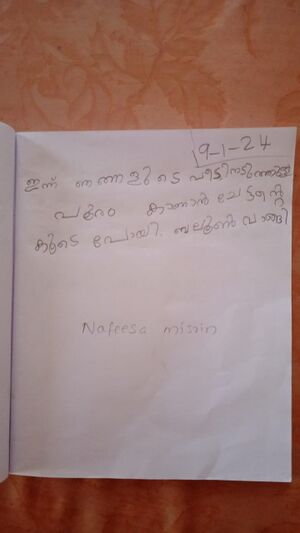 9-1-24
ഇന്ന് ഞങ്ങളുടെ വീട്ടിനടുത്തുള്ള
പൂരം കാണാൻ ചേട്ടൻ്റെ
കൂടെ പോയി. ബലൂൺ വാങ്ങി
Nafeesa